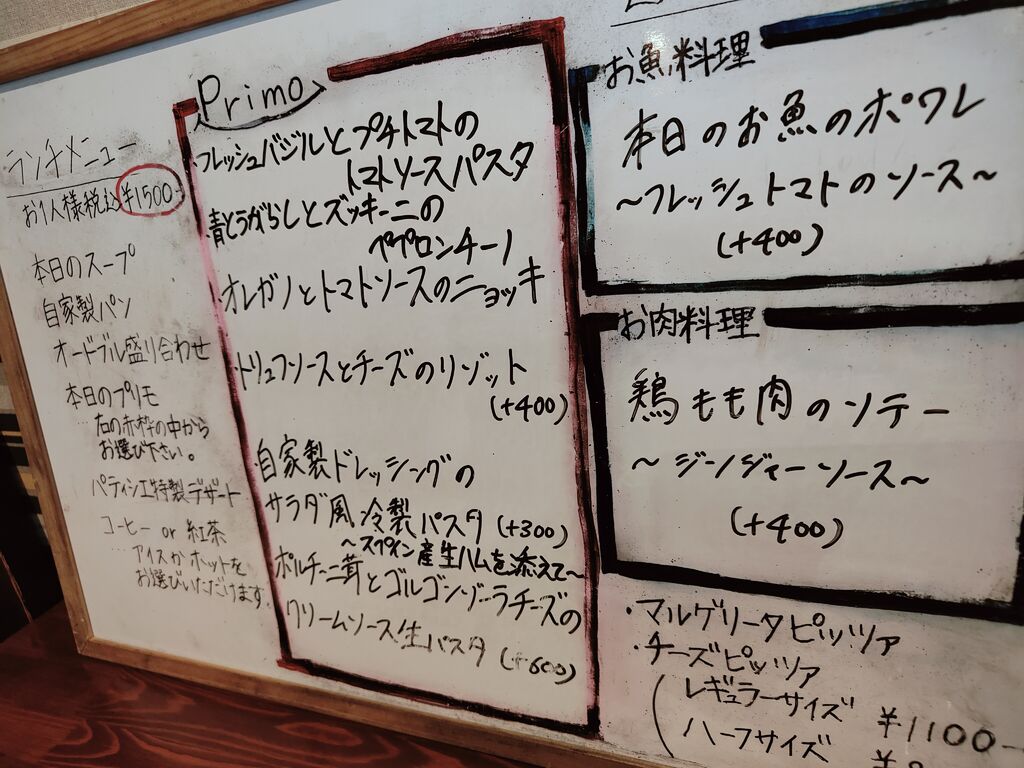 ランチメニュー
お1人様税込¥1500-
本日のスープ
自家製パン
オードブル盛り合わせ
本日のプリモ
右の赤枠の中から
お選び下さい。
パティシエ特製デザート
コーヒー or 紅茶
アイスかホットを
お選びいただけます。
Primo
・フレッシュバジルとプチトマトの
トマトソースパスタ
・青とうがらしとズッキーニの
ペペロンチーノ
・オレガノとトマトソースのニョッキ
・トリュフソースとチーズのリゾット
(+400)
・自家製ドレッシングの
サラダ風冷製パスタ (+300)
～スペイン産生ハムを添えて～
・ポルチーニ茸とゴルゴンゾーラチーズの
クリームソース生パスタ (+600)
お魚料理
本日のお魚のポワレ
～フレッシュトマトのソース～
(+400)
お肉料理
鶏もも肉のソテー
～ジンジャーソース～
(+400)
・マルゲリータピッツァ
・チーズピッツァ
(レギュラーサイズ ¥1100-
ハーフサイズ